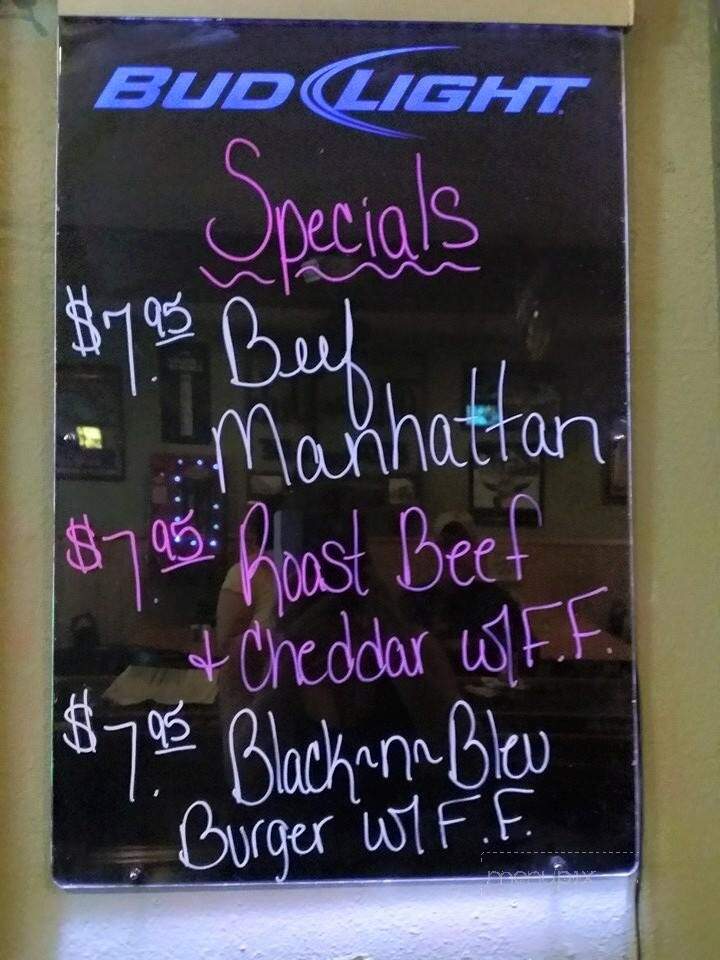 BUD LIGHT
Specials
$7.95 Beef
Manhattan
$7.95 Roast Beef
+ Cheddar w/ F.F.
$7.95 Black~n~Bleu
Burger w/ F.F.
menupix